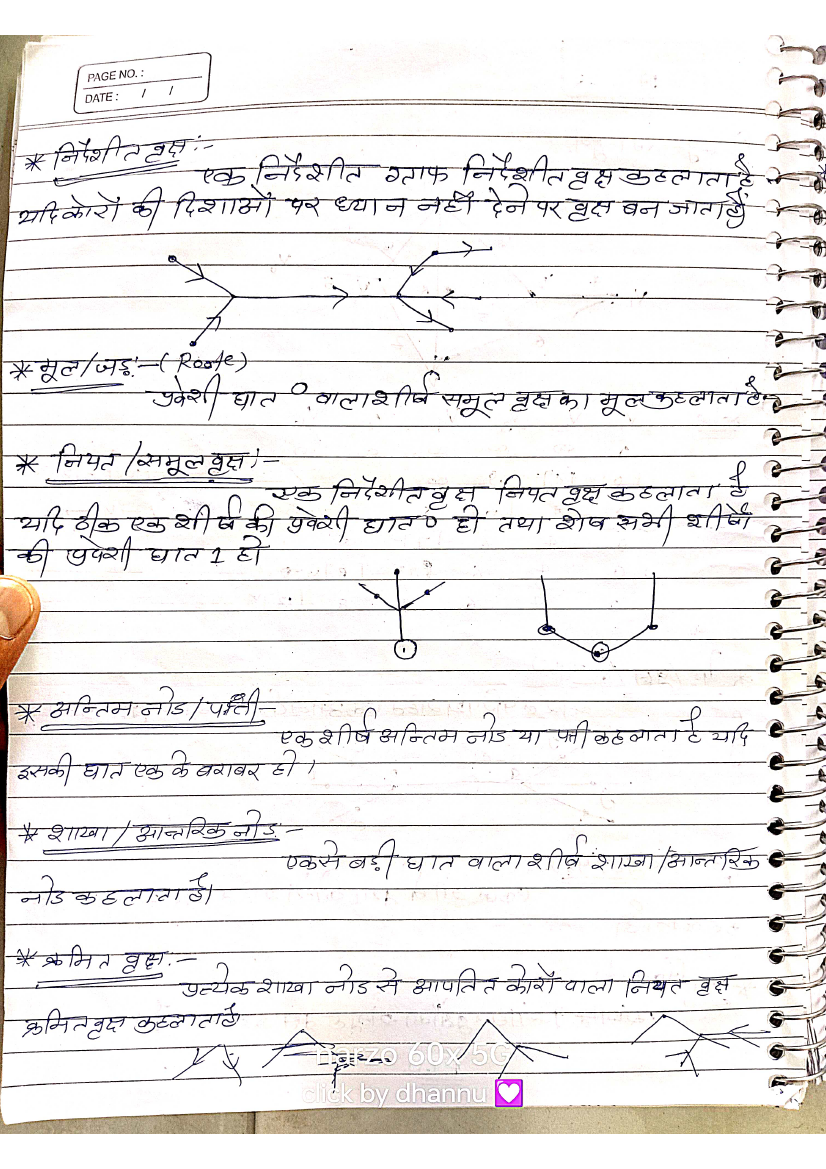 PAGE NO. :
DATE : / /
* निर्देशीत वृक्ष :-
एक निर्देशीत ग्राफ निर्देशीत वृक्ष कहलाता है
यदि कोरों की दिशाओं पर ध्यान नहीं देने पर वृक्ष बन जाता है
* मूल/जड़ :- (Roote)
प्रवेशी घात 0 वाला शीर्ष समूल वृक्ष का मूल कहलाता है
* नियत /समूल वृक्ष :-
एक निर्देशीत वृक्ष नियत वृक्ष कहलाता है
यदि ठीक एक शीर्ष की प्रवेशी घात 0 हो तथा शेष सभी शीर्षों
की प्रवेशी घात 1 हो
* अन्तिम नोड / पत्ती -
एक शीर्ष अन्तिम नोड या पत्ती कहलाता है यदि
इसकी घात एक के बराबर हो ।
* शाखा / आन्तरिक नोड :-
एक से बड़ी घात वाला शीर्ष शाखा /आन्तरिक
नोड कहलाता है।
* क्रमित वृक्ष :-
प्रत्येक शाखा नोड से आपतित कोरों वाला नियत वृक्ष
क्रमित वृक्ष कहलाता है
narzo 60x 5G
click by dhannu 💟